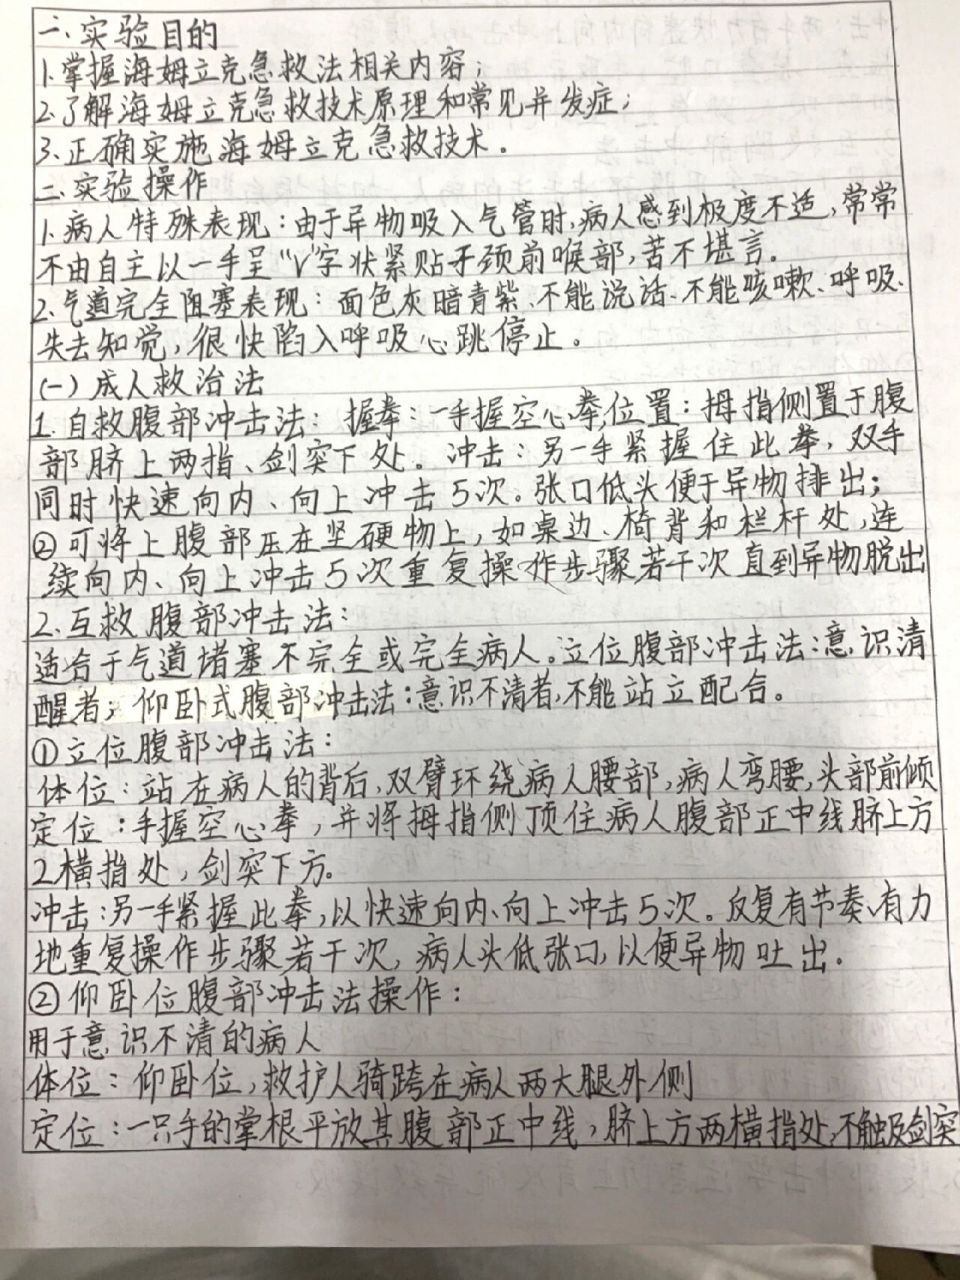 一.实验目的
1.掌握海姆立克急救法相关内容；
2.了解海姆立克急救技术原理和常见并发症；
3.正确实施海姆立克急救技术。
二.实验操作
1.病人特殊表现：由于异物吸入气管时,病人感到极度不适,常常
不由自主以一手呈"V"字状紧贴于颈前喉部,苦不堪言。
2.气道完全阻塞表现：面色灰暗青紫、不能说话、不能咳嗽、呼吸、
失去知觉,很快陷入呼吸心跳停止。
(一)成人救治法
1.自救腹部冲击法：握拳：一手握空心拳,位置：拇指侧置于腹
部脐上两指、剑突下处。冲击：另一手紧握住此拳,双手
同时快速向内、向上冲击5次。张口低头便于异物排出；
②可将上腹部压在坚硬物上,如桌边、椅背和栏杆处,连
续向内、向上冲击5次重复操作步骤若干次直到异物脱出
2.互救腹部冲击法：
适合于气道堵塞不完全或完全病人。立位腹部冲击法：意识清
醒者；仰卧式腹部冲击法：意识不清者,不能站立配合。
①立位腹部冲击法：
体位：站在病人的背后,双臂环绕病人腰部,病人弯腰,头部前倾
定位：手握空心拳,并将拇指侧顶住病人腹部正中线脐上方
2横指处,剑突下方。
冲击：另一手紧握此拳,以快速向内、向上冲击5次。反复有节奏、有力
地重复操作步骤若干次,病人头低张口,以便异物吐出.
②仰卧位腹部冲击法操作：
用于意识不清的病人
体位：仰卧位,救护人骑跨在病人两大腿外侧
定位：一只手的掌根平放其腹部正中线,脐上方两横指处,不触及剑突